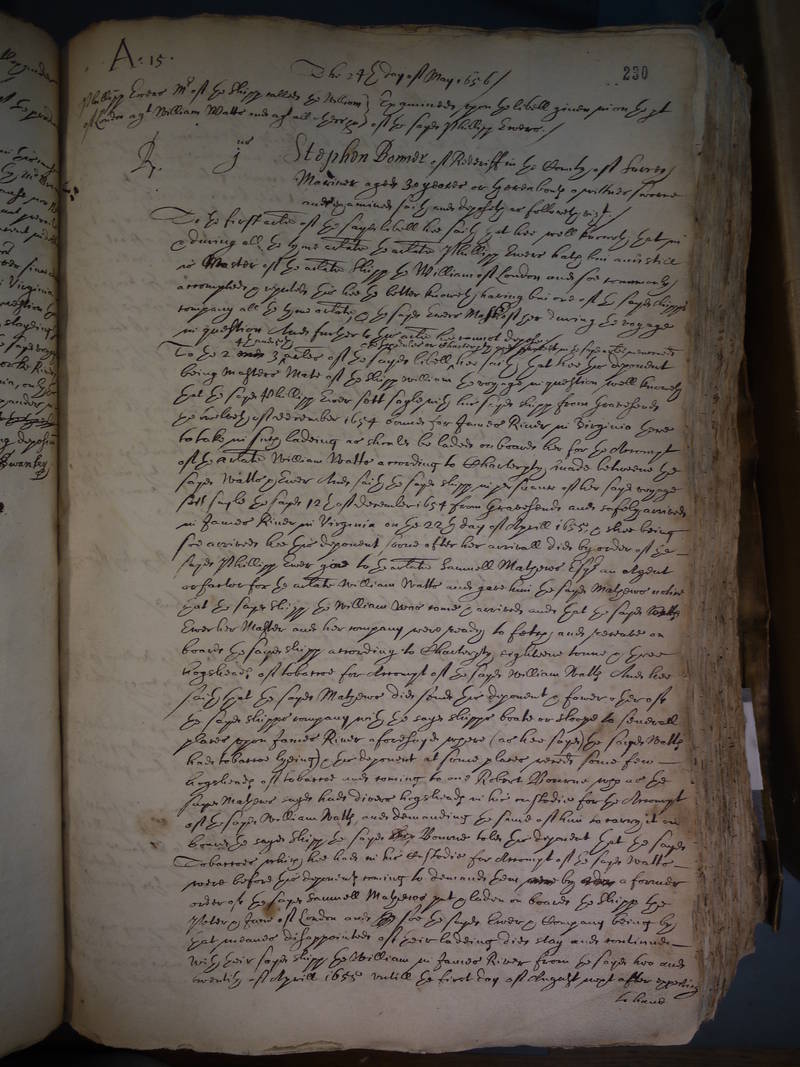 A: 15.
The 24th day of May 1656 /
230
Phillipp Ewers Mr of the Shipp called the William
Examined upon the libell given in on the pt
of London agt William Watts and agt all others &c
of the sayd Phillipp Ewers. /
R. jus
Stephen Bonner of Redriff in the County of Surrey
Mariner aged 30 yeares or thereabouts a wittnes sworne
and examined saith and deposeth as followeth vizt. /
To the first arlle of the sayd libell hee saith that hee well knoweth that in
& during all the tyme arlate the arlate Phillipp Ewers hath bin and is still
Master of the arlate Shipp the William of London and soe commonly
accompted & reputed this hee the better knoweth having bin one of the sayd shipps
company all the tyme arlate, & the sayd Ewers Master of her during the voyage
in question And further to this arlle hee cannot depose
To the 2 3 arles of the sayd libell hee saith that hee this deponent
being Masters Mate of the shipp William the voyage in question well knoweth
that the sayd Phillipp Ewer sett sayle with his sayd shipp from Gravesende
the twelveth of december 1654 bound for James River in Virginia there
to take in such ladeing as should be laden on board her for the Accompt
of the arlate William Watts according to Charterpty made betweene the
sayd Watts & Ewer And saith the sayd shipp in pursuance of her sayd voyage
sett sayle the sayd 12th of december 1654 from Gravesende and safely arrived
in James River in Virginia on the 22th day of Aprill 1655 & shee being
soe arrived hee this deponent soone after her arrivall did by order of the
sayd Phillipp Ewer goe to the arlate Samuell Mathews Esqr an Agent
or factor for the arlate William Watts and gave him the sayd Mathews notice
that the sayd shipp the William was come & arrived and that the sayd
Ewer her Master and her company were ready to fetch and receive on
board the sayd shipp according to Charterpty eighteene tonne & three
hogsheads of tobaccoe for Accompt of the sayd William Watts And hee
saith that the sayd Mathews did send this deponent & fower others of
the sayd shipps company with the sayd shipps boate or sloope to severall
places upon James River aforesayd where (as hee sayd) the sayd Watts
had tobaccoe lyeing) & this deponent at some places receed some few
hogsheads of tobaccoe and coming to one Robert Bourne who as the
sayd Mathews sayd had divers hogsheads in his custodie for the Accompt
of the sayd William Watts, and demanding the same of him to carry it on
board the sayd shipp the sayd Bourne told this deponent that the sayd
Tobaccoes which hee had in his Custodie for Accompt of the sayd Watts
were before this deponents coming to demand them by a former
order of the sayd Samuell Mathews put & laden on board the Shipp the
Peter & Jane of London and soe the sayd Ewer & Company being by
that meanes disappointed of their ladeing did stay and continue
with their sayd shipp the William in James River from the sayd two and
twentith of Aprill 1655 untill the first day of August next after expecting
to have